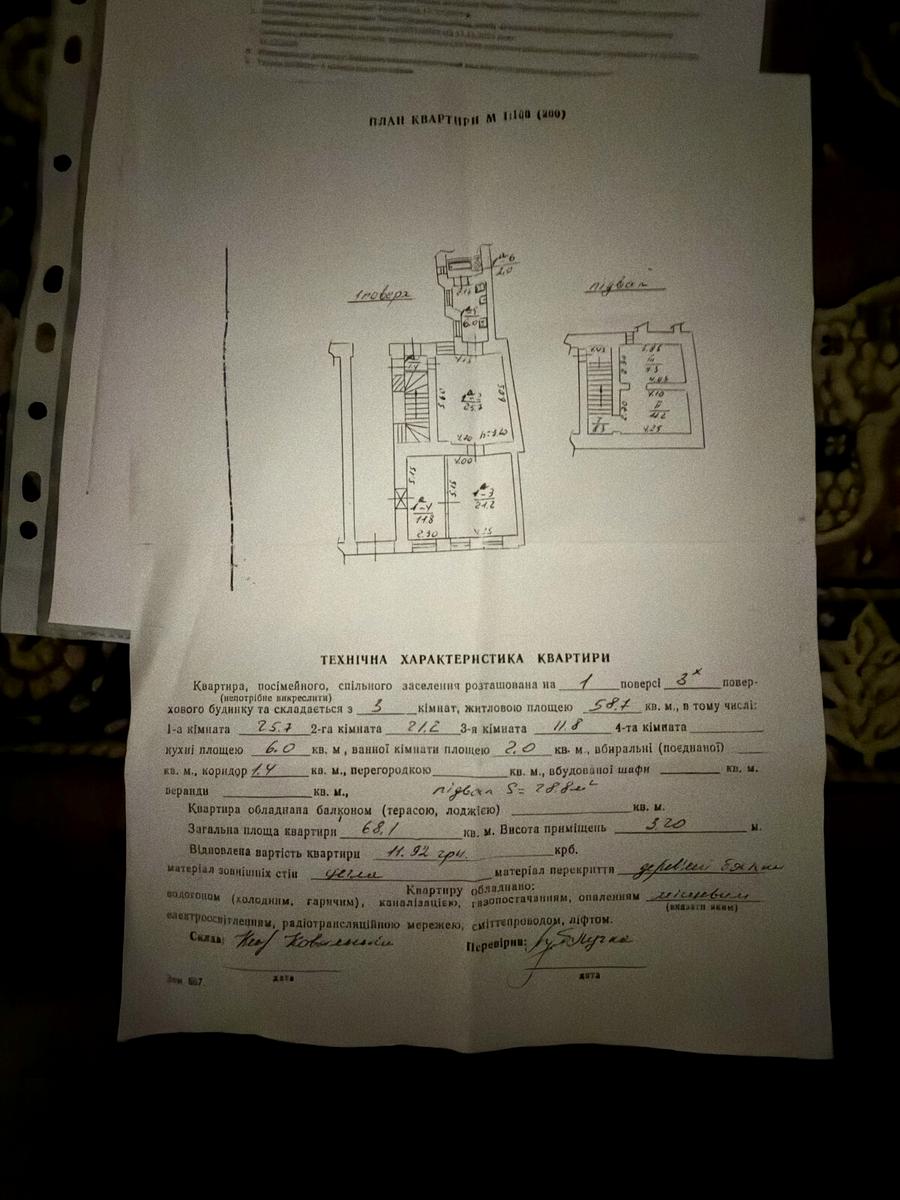 ПЛАН КВАРТИРИ М 1:100 (200)
1 поверх
підвал
6
2.0
6.0
1.4
4.15
5.60
1-2
25.7
6.05
4.20 h=3.20
4.00
5.15
5.15
1-4
11.8
1-3
21.2
2.30
4.25
2.30
7.5
4.05
4.10
2.70
II
11.2
I
4.25
ТЕХНІЧНА ХАРАКТЕРИСТИКА КВАРТИРИ
Квартира, посімейного, спільного заселення розташована на 1 поверсі 3х повер-
(непотрібне викреслити)
хового будинку та складається з 3 кімнат, житловою площею 58.7 кв. м., в тому числі:
1-а кімната 25.7 2-га кімната 21.2 3-я кімната 11.8 4-та кімната
кухні площею 6.0 кв. м, ванної кімнати площею 2.0 кв. м., вбиральні (поєднаної)
кв. м., коридор 1.4 кв. м., перегородкою кв. м., вбудованої шафи кв. м.
веранди кв. м., підвал S= 28.8 м²
Квартира обладнана балконом (терасою, лоджією) кв. м.
Загальна площа квартири 68,1 кв. м. Висота приміщень 3.20 м.
Відновлена вартість квартири 11.92 грн. крб.
матеріал зовнішніх стін цегла матеріал перекриття дерев'яні балки
Квартиру обладнано:
водогоном (холодним, гарячим), каналізацією, газопостачанням, опаленням місцевим
(вказати яким)
електроосвітленням, радіотрансляційною мережею, сміттєпроводом, ліфтом.
Склав: Перевірив:
дата дата
Зам. 567